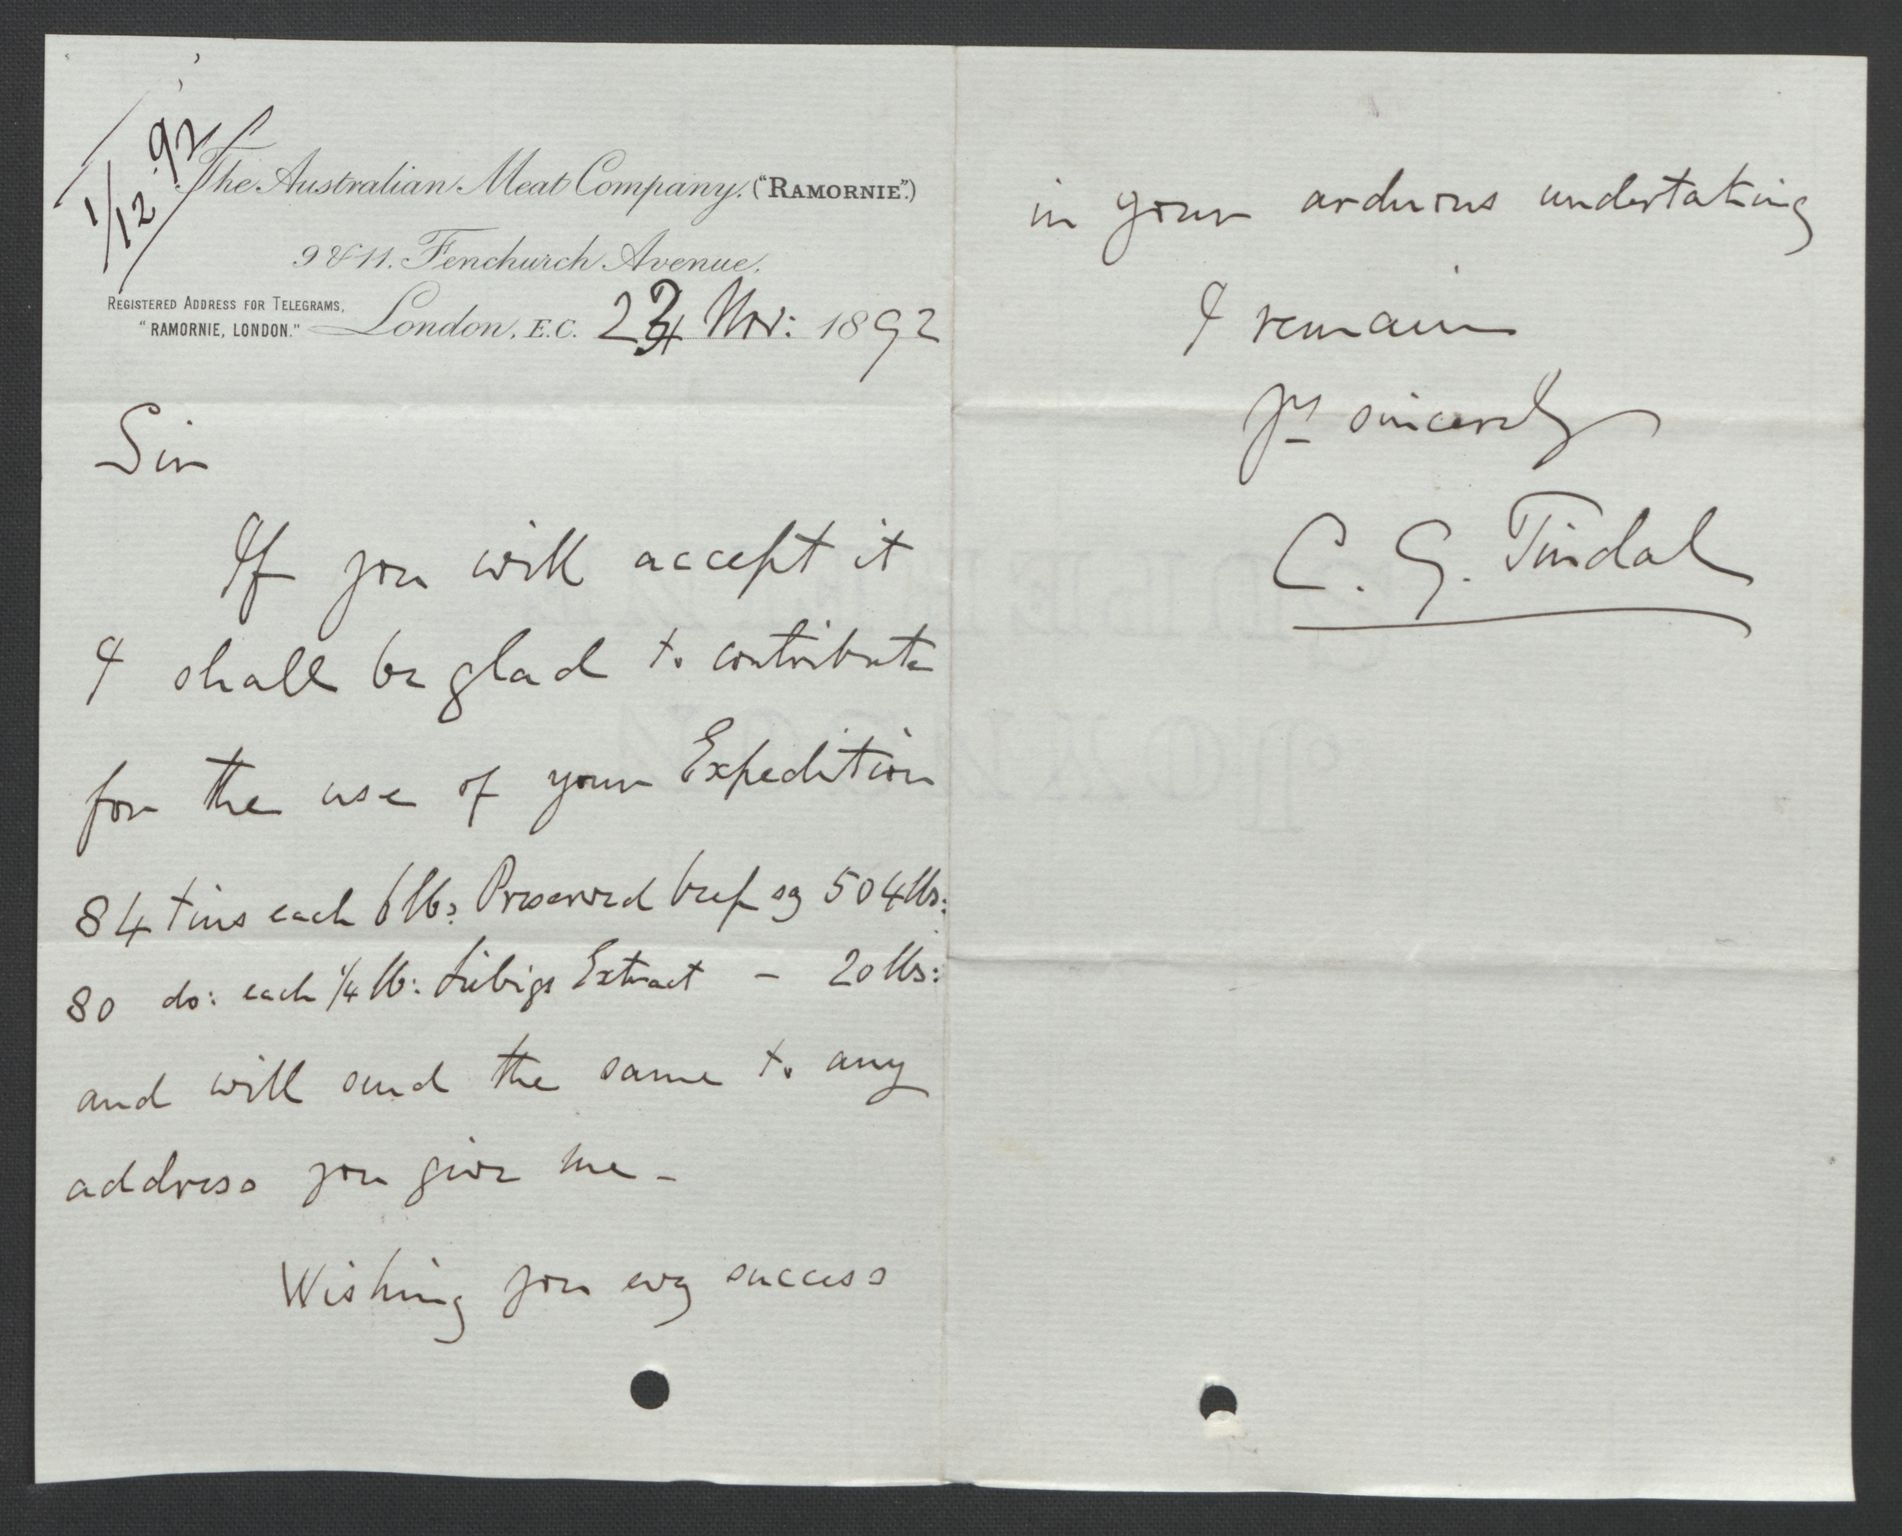 1/12.92
The Australian Meat Company. ("RAMORNIE".)
9 & 11. Fenchurch Avenue.
REGISTERED ADDRESS FOR TELEGRAMS,
"RAMORNIE, LONDON."
London, E.C. 24 Nov: 1892
Sir
If you will accept it
I shall be glad to contribute
for the use of your Expedition
84 tins each 6 lbs: Preserved beef sg 504 lbs:
80 do: each 1/4 lb: Liebigs Extract - 20 lbs:
and will send the same to any
address you give me -
Wishing you evy success
in your arduous undertaking
I remain
Yrs sincerely
C. G. Tindal